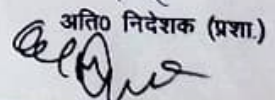 अति० निदेशक (प्रशा.)